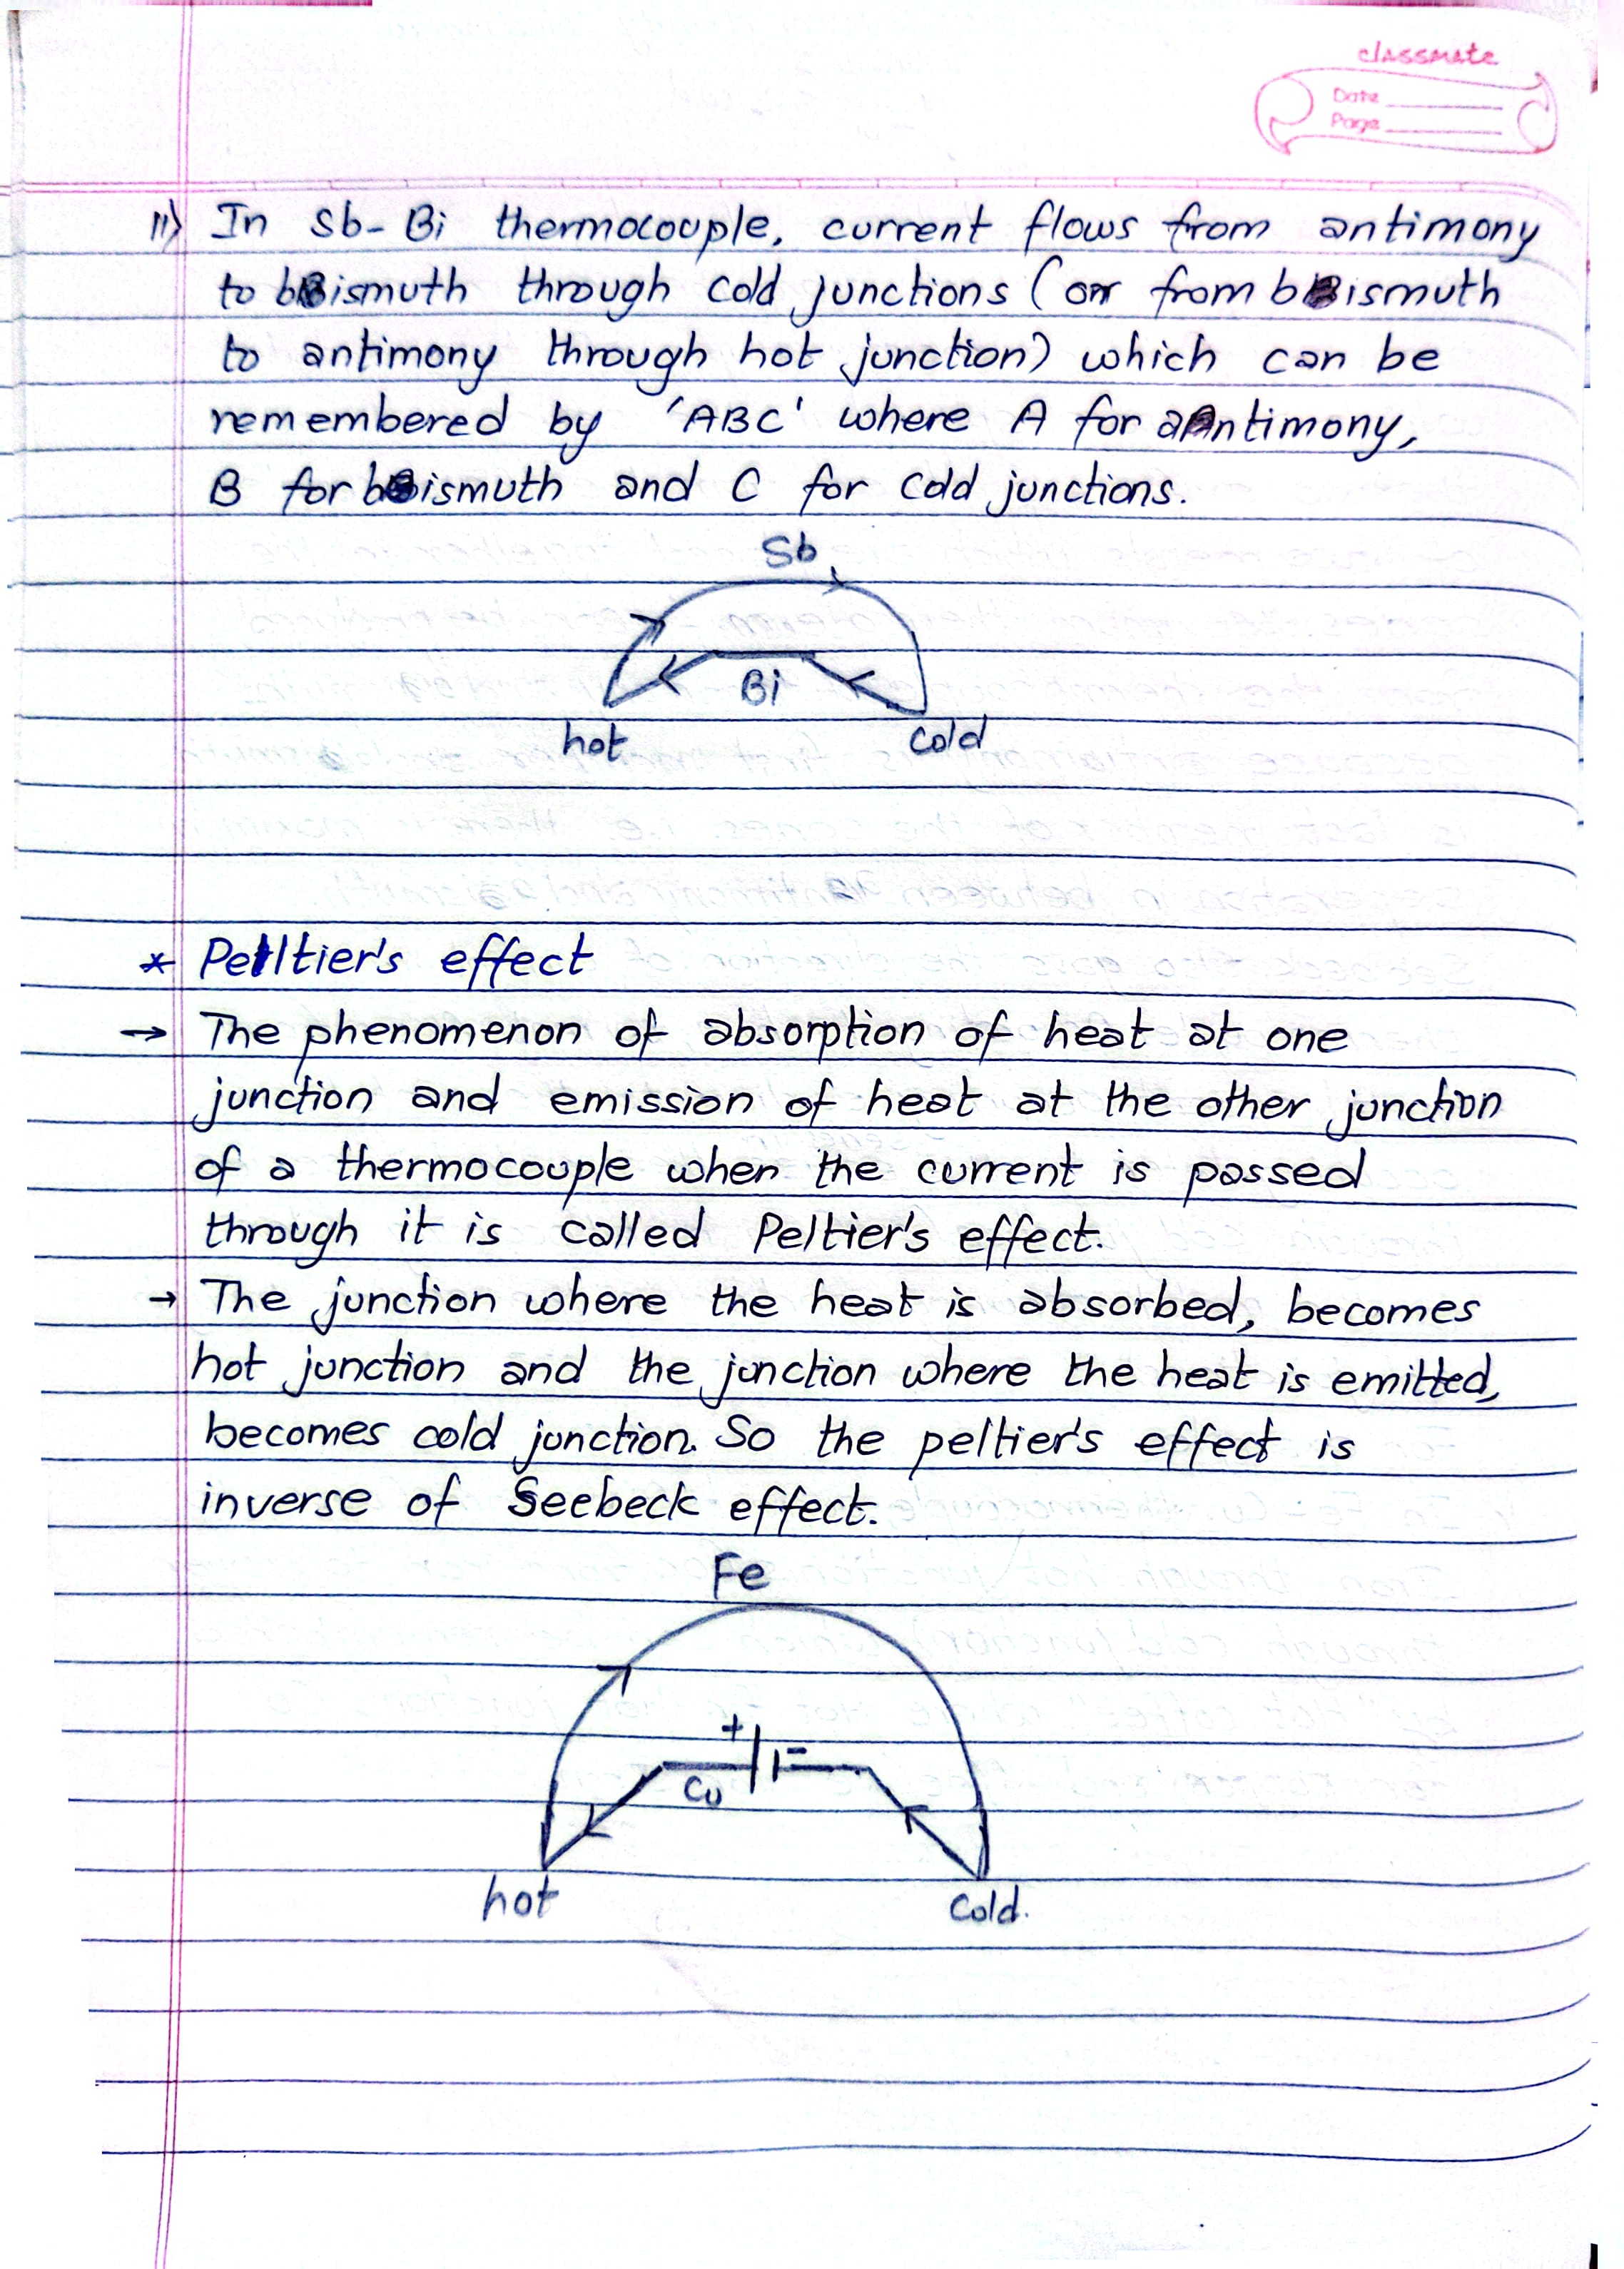 classmate
Date
Page
ii) In Sb-Bi thermocouple, current flows from antimony
to bismuth through cold junctions (or from bismuth
to antimony through hot junction) which can be
remembered by 'ABC' where A for antimony,
B for bismuth and C for cold junctions.
Sb
Bi
hot cold
* Peltier's effect
→ The phenomenon of absorption of heat at one
junction and emission of heat at the other junction
of a thermocouple when the current is passed
through it is called Peltier's effect.
→ The junction where the heat is absorbed, becomes
hot junction and the junction where the heat is emitted,
becomes cold junction. So the peltier's effect is
inverse of Seebeck effect.
Fe
+ -
Cu
hot Cold.